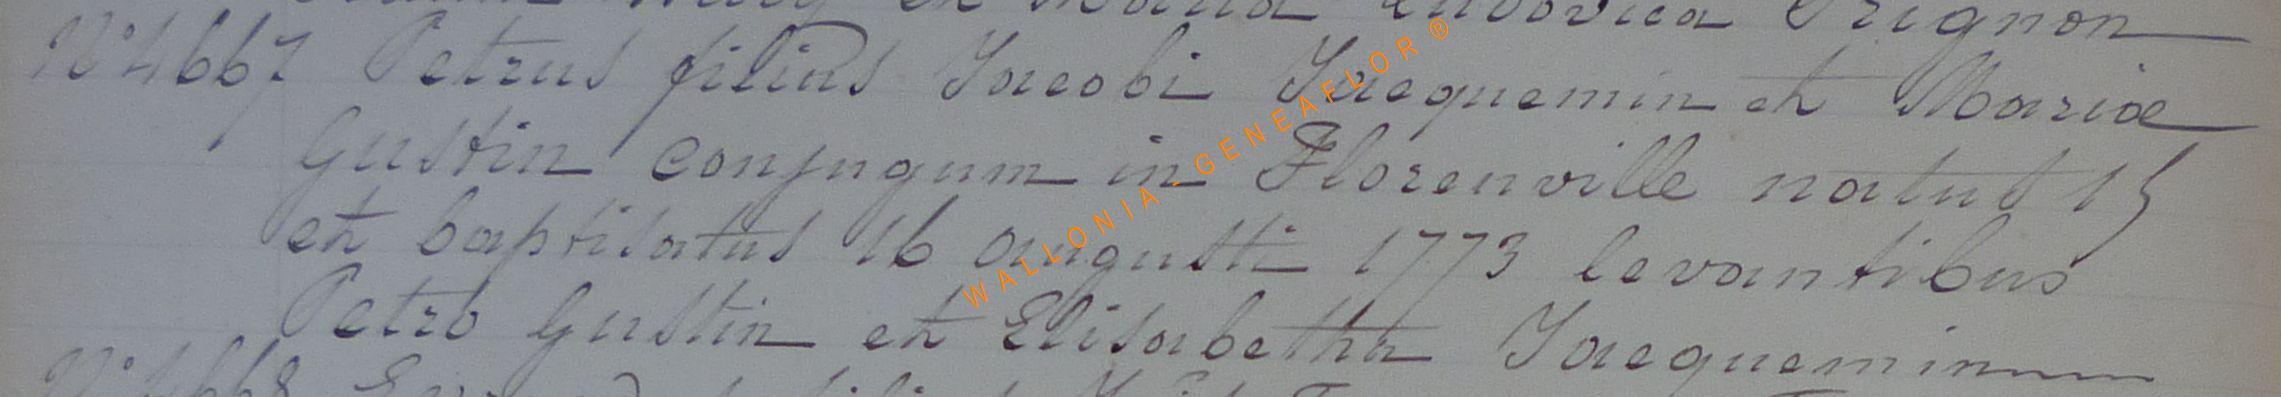 et Maria Ludovica Trignon
N° 4667 Petrus filius Jacobi Jacquemin et Mariae
Gustin conjugum in Florenville natus 15
et baptisatus 16 augusti 1773 levantibus
Petro Gustin et Elisabetha Jacquemin
N° 4668
WALLONIA-GENEAFLOR®